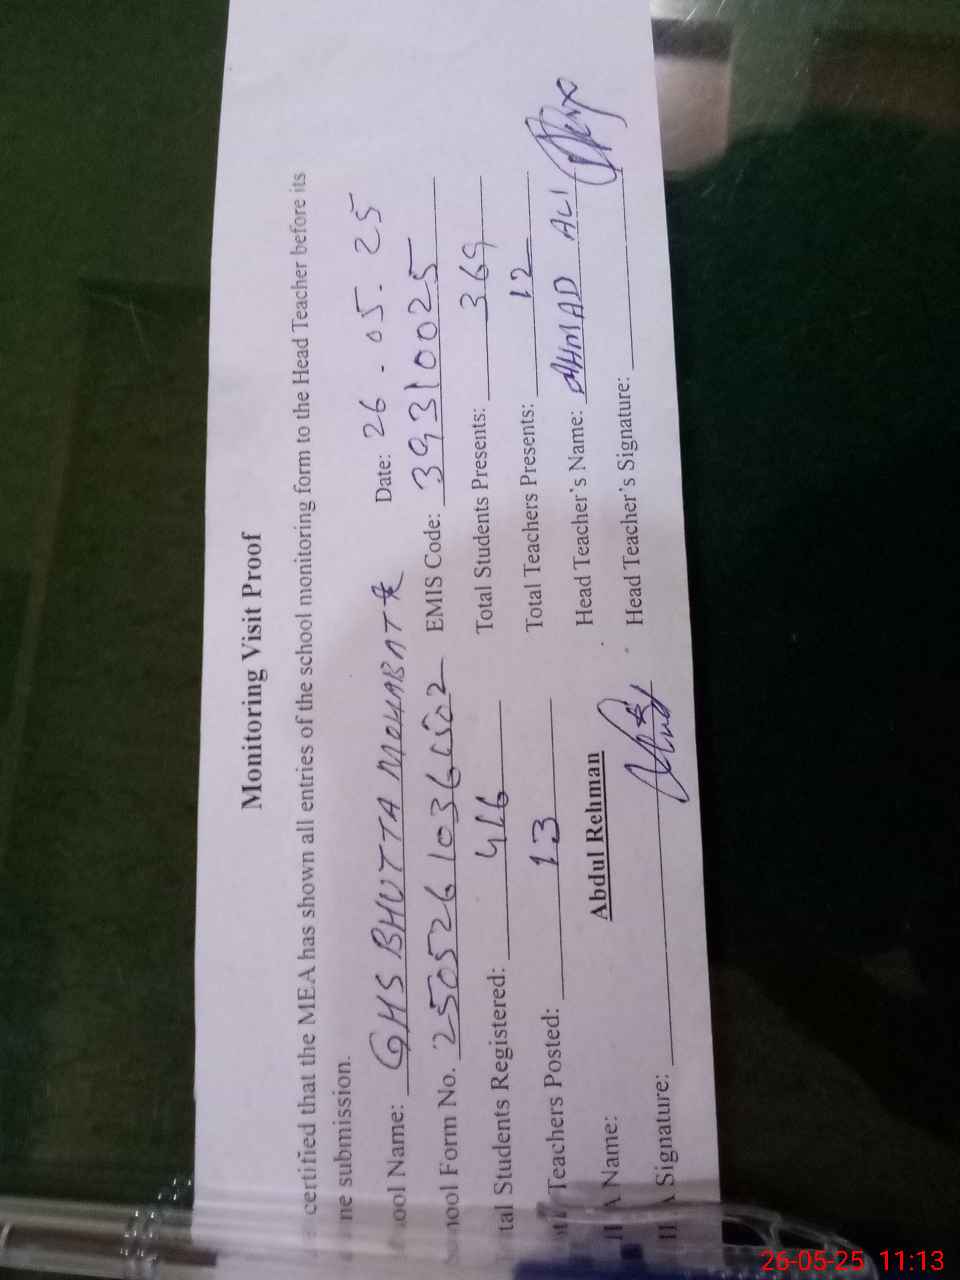 Monitoring Visit Proof
certified that the MEA has shown all entries of the school monitoring form to the Head Teacher before its
ne submission.
ool Name: GHS BHUTTA MOHABAT Date: 26-05-25
ool Form No. EMIS Code: 39310025
tal Students Registered: 416 Total Students Presents: 369
Teachers Posted: 13 Total Teachers Presents: 12
A Name: Abdul Rehman Head Teacher's Name: AHMAD ALI
A Signature: Head Teacher's Signature:
26-05-25 11:13